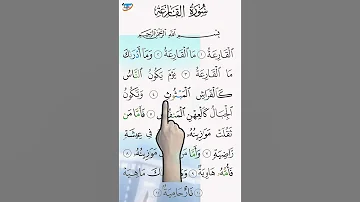 سُورَةُ القَارِعَةِ
بِسْمِ اللَّهِ الرَّحْمَٰنِ الرَّحِيمِ
ٱلْقَارِعَةُ ١ مَا ٱلْقَارِعَةُ ٢ وَمَآ أَدْرَىٰكَ
مَا ٱلْقَارِعَةُ ٣ يَوْمَ يَكُونُ ٱلنَّاسُ
كَٱلْفَرَاشِ ٱلْمَبْثُوثِ ٤ وَتَكُونُ
ٱلْجِبَالُ كَٱلْعِهْنِ فَأَمَّا مَن
ثَقُلَتْ مَوَٰزِينُهُۥ فِى عِيشَةٍ
رَّاضِيَةٍ ٧ وَأَمَّا مَوَٰزِينُهُۥ ٨
فَأُمُّهُۥ هَاوِيَةٌ ٩ مَا هِيَهْ
نَارٌ حَامِيَةٌۢ